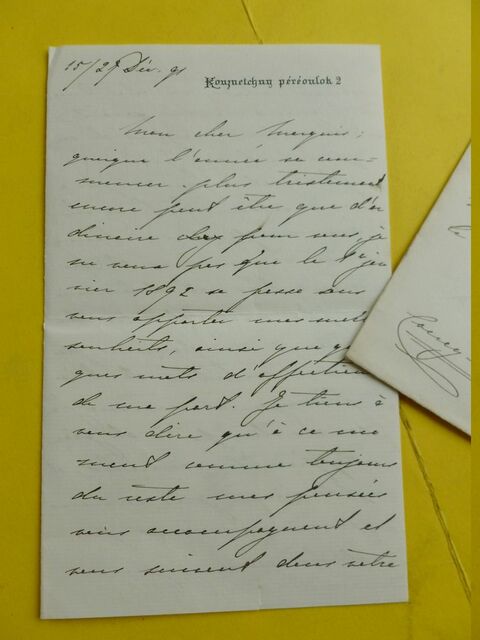 15/27 Déc. 91
Kouznetchny péréoulok 2
Mon cher Marquis;
quoique l'année se com-
mence plus tristement
encore peut être que d'or
dinaire pour vous, je
ne veux pas que le 1er jan
vier 1892 se passe sans
vous apporter mes meil
souhaits, ainsi que quel
ques mots d'affection
de ma part. Je tiens à
vous dire qu'à ce mo
ment comme toujours
du reste mes pensées
vous accompagnent et
vous suivent dans votre